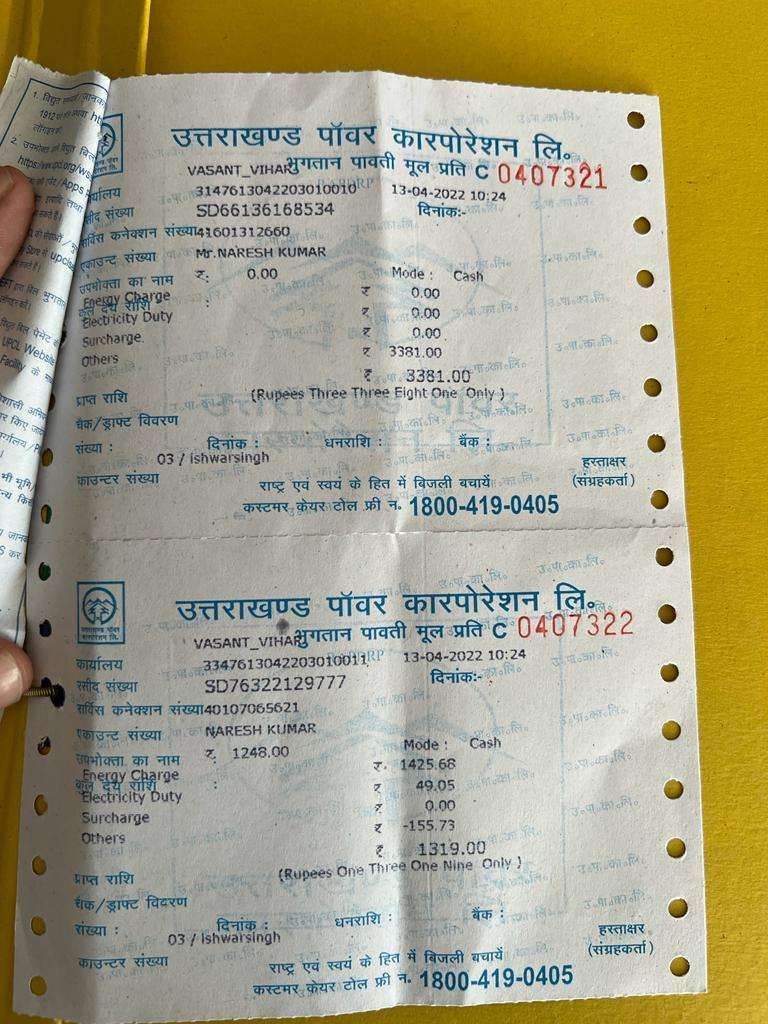 1. विद्युत
1912 पर
2. उपभोक्ता
उत्तराखण्ड पॉवर कारपोरेशन लि॰
VASANT_VIHAR भुगतान पावती मूल प्रति C 0407321
कार्यालय 3147613042203010010 13-04-2022 10:24
रसीद संख्या SD66136168534 दिनांक:-
सर्विस कनेक्शन संख्या 41601312660
एकाउन्ट संख्या Mr.NARESH KUMAR
उपभोक्ता का नाम ₹: 0.00 Mode : Cash
Energy Charge ₹ 0.00
कुल देय राशि :
Electricity Duty ₹ 0.00
Surcharge ₹ 0.00
Others ₹ 3381.00
₹ 3381.00
प्राप्त राशि (Rupees Three Three Eight One Only )
चैक/ड्राफ्ट विवरण
संख्या : दिनांक : धनराशि : बैंक :
03 / ishwarsingh हस्ताक्षर
काउन्टर संख्या राष्ट्र एवं स्वयं के हित में बिजली बचायें (संग्रहकर्ता)
कस्टमर केयर टोल फ्री न. 1800-419-0405
उत्तराखण्ड पॉवर कारपोरेशन लि॰
VASANT_VIHAR भुगतान पावती मूल प्रति C 0407322
कार्यालय 3347613042203010011 13-04-2022 10:24
रसीद संख्या SD76322129777 दिनांक:-
सर्विस कनेक्शन संख्या 40107065621
एकाउन्ट संख्या NARESH KUMAR
उपभोक्ता का नाम ₹: 1248.00 Mode : Cash
Energy Charge ₹. 1425.68
कुल देय राशि :
Electricity Duty ₹ 49.05
Surcharge ₹ 0.00
Others ₹ -155.73
₹ 1319.00
प्राप्त राशि (Rupees One Three One Nine Only )
चैक/ड्राफ्ट विवरण
संख्या : दिनांक : धनराशि : बैंक :
03 / ishwarsingh हस्ताक्षर
काउन्टर संख्या राष्ट्र एवं स्वयं के हित में बिजली बचायें (संग्रहकर्ता)
कस्टमर केयर टोल फ्री न. 1800-419-0405